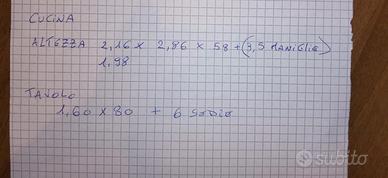 CUCINA
ALTEZZA 2,16 x 2,96 x 58 + (3,5 MANIGLIE)
1,98
TAVOLO
1,60 x 80 + 6 SEDIE
subito